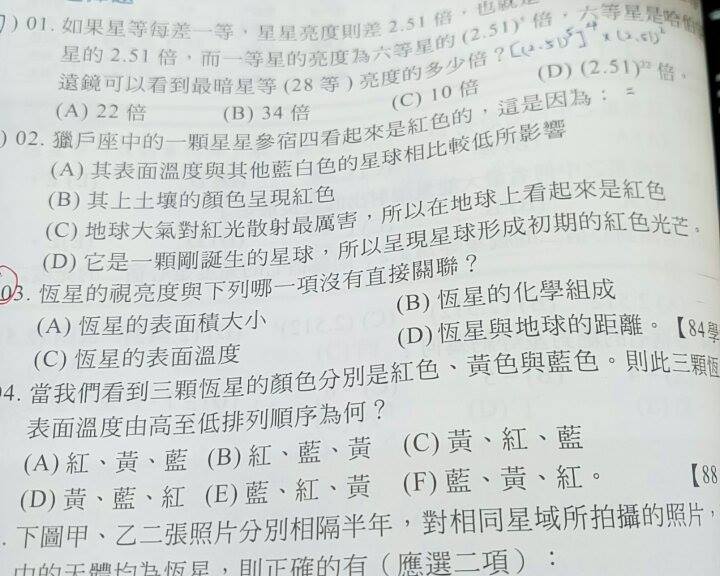 01. 如果星等每差一等，星星亮度則差 2.51 倍，也就是
星的 2.51 倍，而一等星的亮度為六等星的 (2.51)⁵ 倍，六等星是哈伯
遠鏡可以看到最暗星等 (28 等) 亮度的多少倍？[(2.51)⁵]⁴ × (2.51)²
(A) 22 倍 (B) 34 倍 (C) 10 倍 (D) (2.51)²² 倍。
02. 獵戶座中的一顆星星參宿四看起來是紅色的，這是因為：
(A) 其表面溫度與其他藍白色的星球相比較低所影響
(B) 其上土壤的顏色呈現紅色
(C) 地球大氣對紅光散射最厲害，所以在地球上看起來是紅色
(D) 它是一顆剛誕生的星球，所以呈現星球形成初期的紅色光芒。
03. 恆星的視亮度與下列哪一項沒有直接關聯？
(A) 恆星的表面積大小 (B) 恆星的化學組成
(C) 恆星的表面溫度 (D) 恆星與地球的距離。【84學
04. 當我們看到三顆恆星的顏色分別是紅色、黃色與藍色。則此三顆恆
表面溫度由高至低排列順序為何？
(A) 紅、黃、藍 (B) 紅、藍、黃 (C) 黃、紅、藍
(D) 黃、藍、紅 (E) 藍、紅、黃 (F) 藍、黃、紅。 【88
. 下圖甲、乙二張照片分別相隔半年，對相同星域所拍攝的照片，
中的天體均為恆星，則正確的有（應選二項）：